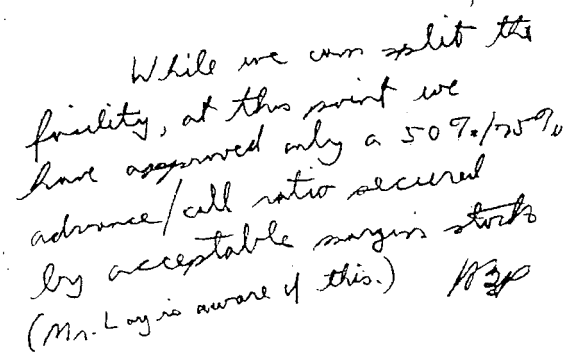 While we can split the
facility, at this point we
have approved only a 50%/75%
advance/call ratio secured
by acceptable margin stock
(Mr. Lay is aware of this.)